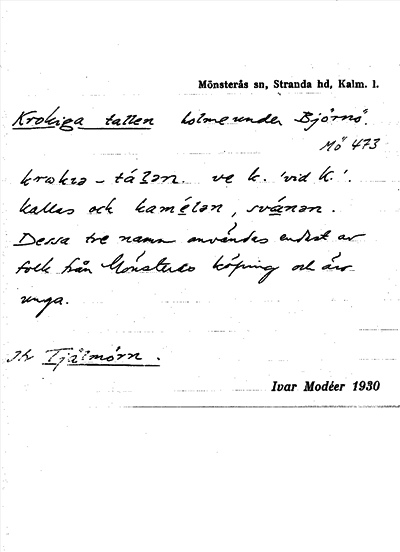 Mönsterås sn, Stranda hd, Kalm. l.
Krokiga tallen holme under Björnö.
Mö 473
krokıa - tálən. ve k. 'vid K.'.
kallas och kamélən, svánən.
Dessa tre namn användas endast av
folk från Mönsterås köping och äro
unga.
Jfr Tjälmörn.
Ivar Modéer 1930